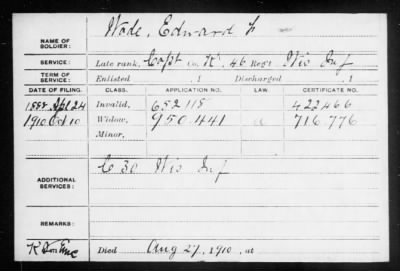 NAME OF SOLDIER: Wade, Edward L
SERVICE: Late rank, Capt Co. K, 46 Reg't Wis Inf
TERM OF SERVICE: Enlisted , 1 Discharged , 1
DATE OF FILING. CLASS. APPLICATION NO. LAW. CERTIFICATE NO.
1888 Apl 24 Invalid, 652 115 422466
1910 Oct 10 Widow, 950.441 716.776
Minor,
ADDITIONAL SERVICES: C 30 Wis Inf
REMARKS:
Died Aug 27, 1910, at